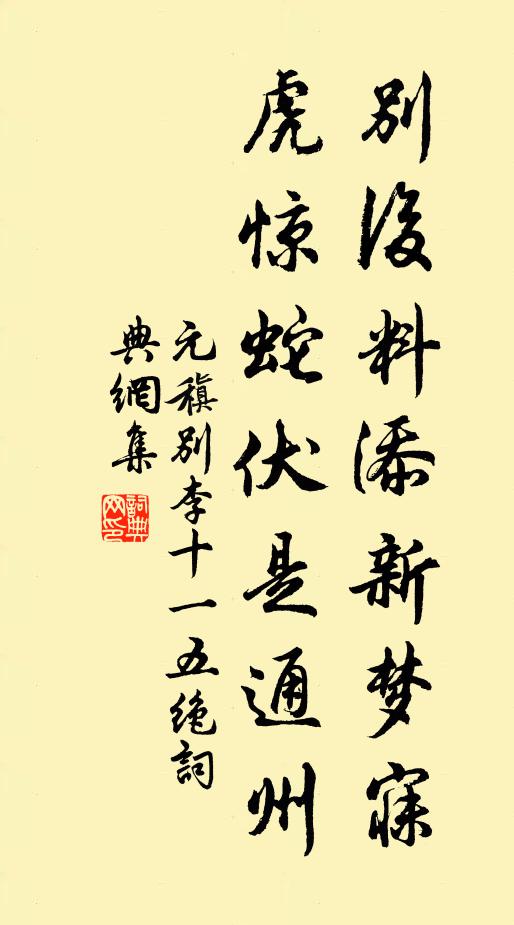 别後料添新梦寐
虎惊蛇伏是通州
元稹别李十一五绝詞
典網集
詞典
网印